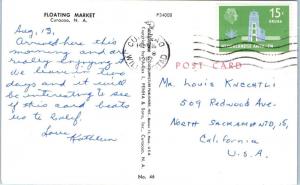 FLOATING MARKET
Curacao, N. A.
P34008
15c
ARUBA
NEDERLANDSE ANTILLEN
Aug, 13,
Arrived here this
morning and are
really enjoying it
we leave in two
days and it will
be interesting to see
if this card beats
us to Calif.
Love
Kathleen
POST CARD
Mr. Louis Knechtli
509 Redwood Ave.
North Sacramento, 15,
California
U.S.A.
No. 46